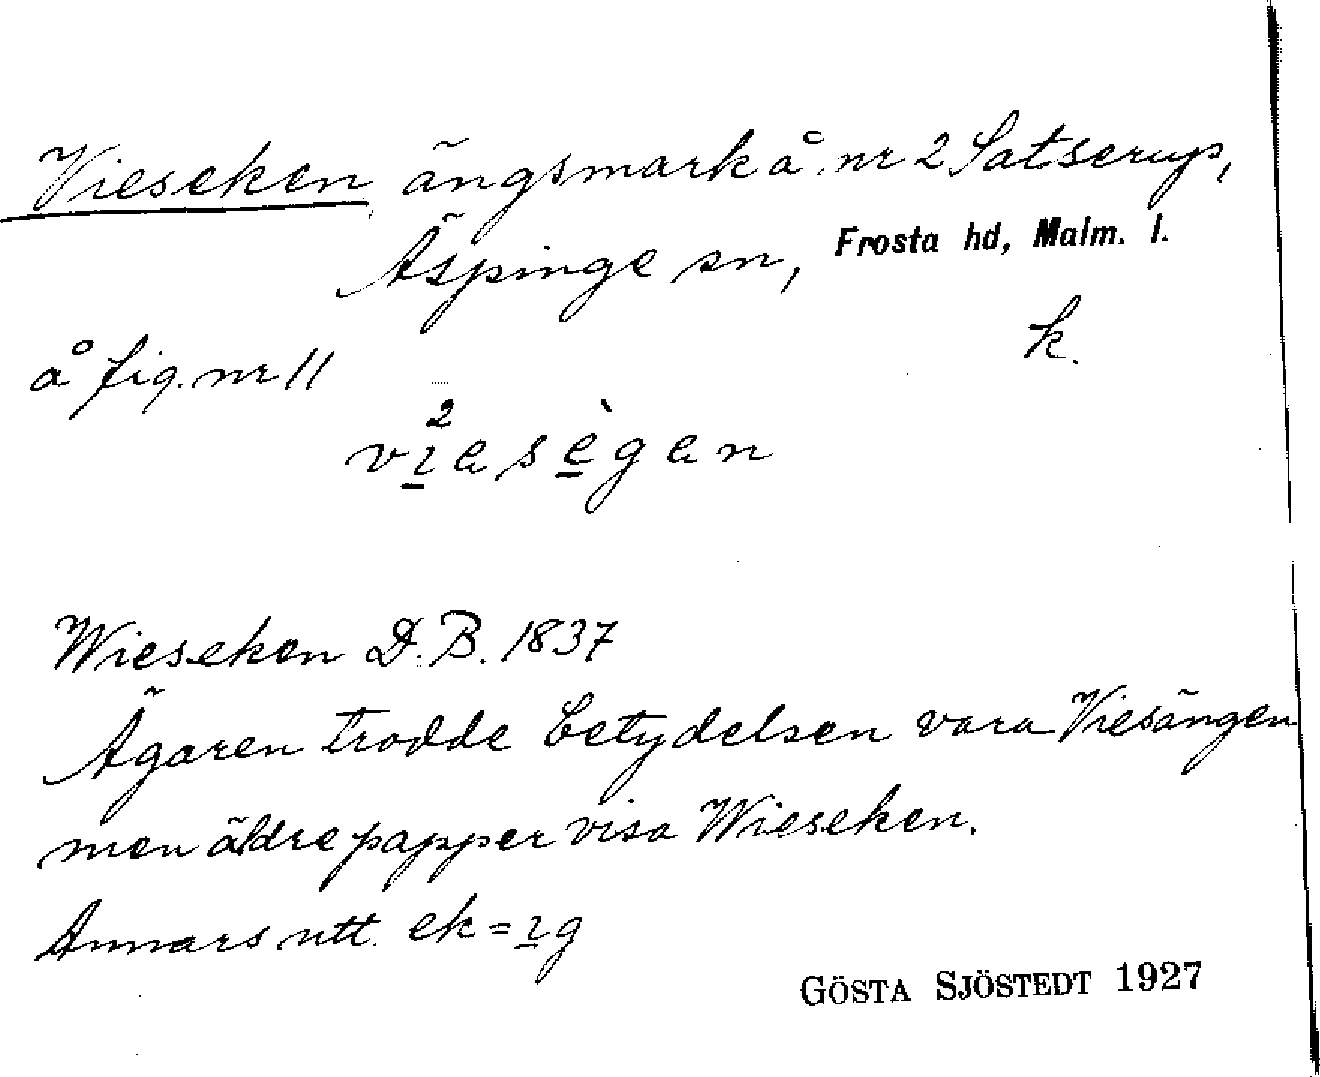 Vieseken, ängsmark å nr 2 Satserup,
Äspinge sn, Frosta hd, Malm. l.
å fig. nr 11 k.
vi̱²esèg̱en
Wieseken D.B. 1837
Ägaren trodde betydelsen vara Viesängen
men äldre papper visa Wieseken.
Annars utt. ek = ı̱g
GÖSTA SJÖSTEDT 1927